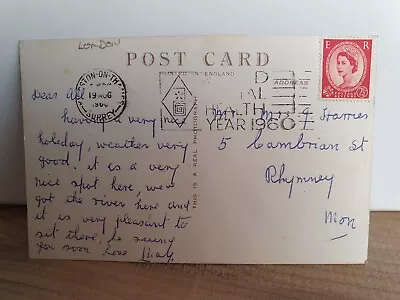 LONDON
POST CARD
PRINTED IN ENGLAND
ADDRESS
E R
KINGSTON-ON-THAMES
19 AUG
1960
SURREY
HEALTH
YEAR 1960
THIS IS A REAL PHOTOGRAPH
Dear all
having a very nice
holiday, weather very
good. it is a very
nice spot here, we've
got the river here and
it is very pleasant to
sit there, be seeing
you soon Love May.
Mr Mrs J Harries
5 Cambrian St
Rhymney
Mon